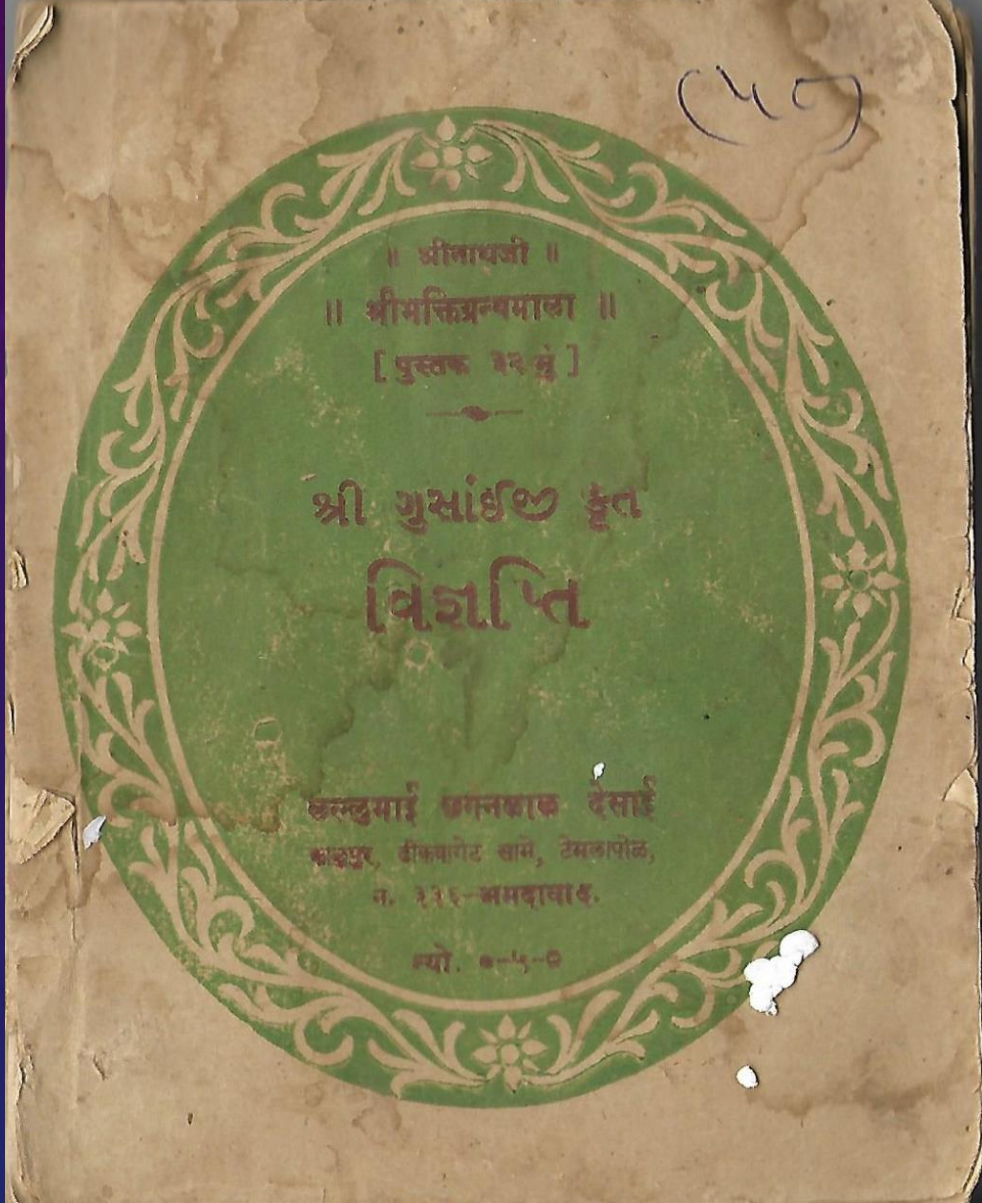 ॥ श्रीनाथजी ॥
॥ श्रीभक्तिग्रन्थमाला ॥
[ पुस्तक ३२ मुं ]
શ્રી ગુસાંઈજી કૃત
વિજ્ઞપ્તિ
लल्लुभाई छगनलाल देसाई
काळुपुर, टीकमगेट सामे, टेमलापोळ,
नं. ३३६-अमदावाद.
न्यो. ०-५-०